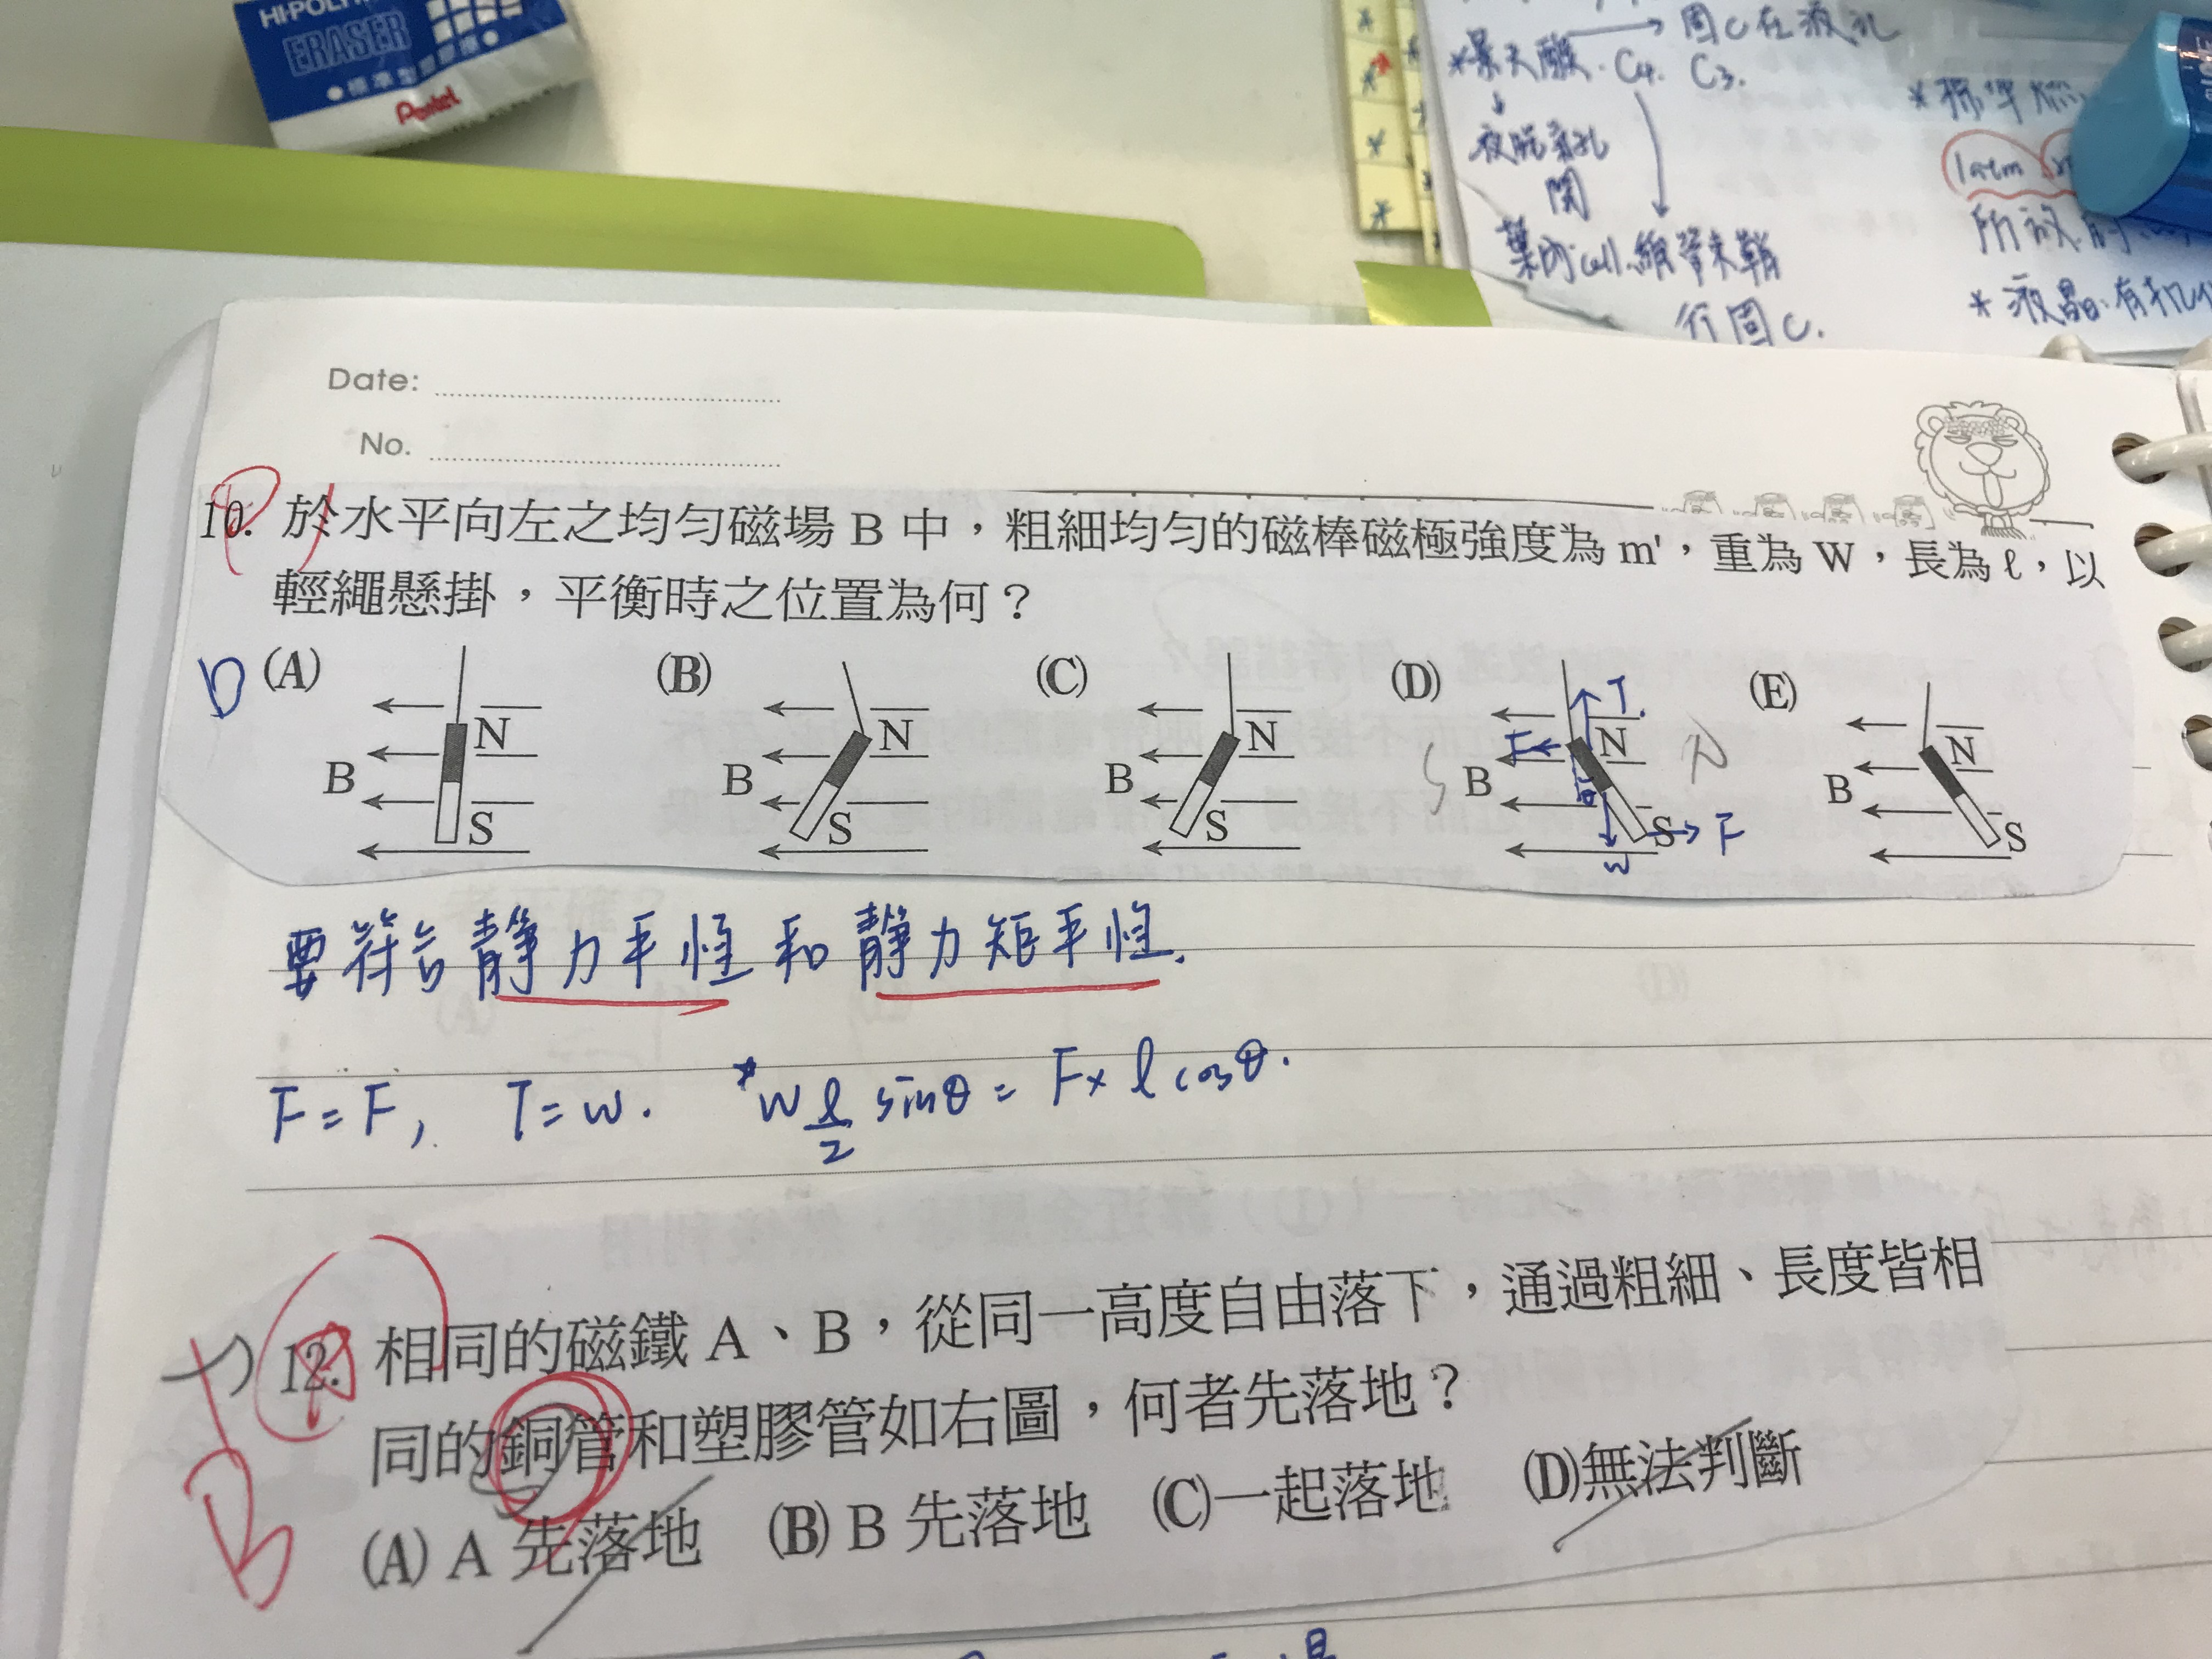 HI-POLYM
ERASER
標準型
Pentel
*景天酸. C4. C3. → 固C在液孔
夜晚氣孔
開
葉肉cell.維管束鞘
行固C.
*標準
1atm
所放
*液晶:有机
Date:
No.
10. 於水平向左之均勻磁場 B 中，粗細均勻的磁棒磁極強度為 m'，重為 W，長為 ℓ，以
輕繩懸掛，平衡時之位置為何？
D
(A) B N S
(B) B N S
(C) B N S
(D) B N S S N T. F F W
(E) B N S
要符合靜力平恆和靜力矩平恆.
F=F, T=W. *W ℓ/2 sinθ = F×ℓcosθ.
12. 相同的磁鐵 A、B，從同一高度自由落下，通過粗細、長度皆相
同的銅管和塑膠管如右圖，何者先落地？
B
(A) A 先落地 (B) B 先落地 (C)一起落地 (D)無法判斷